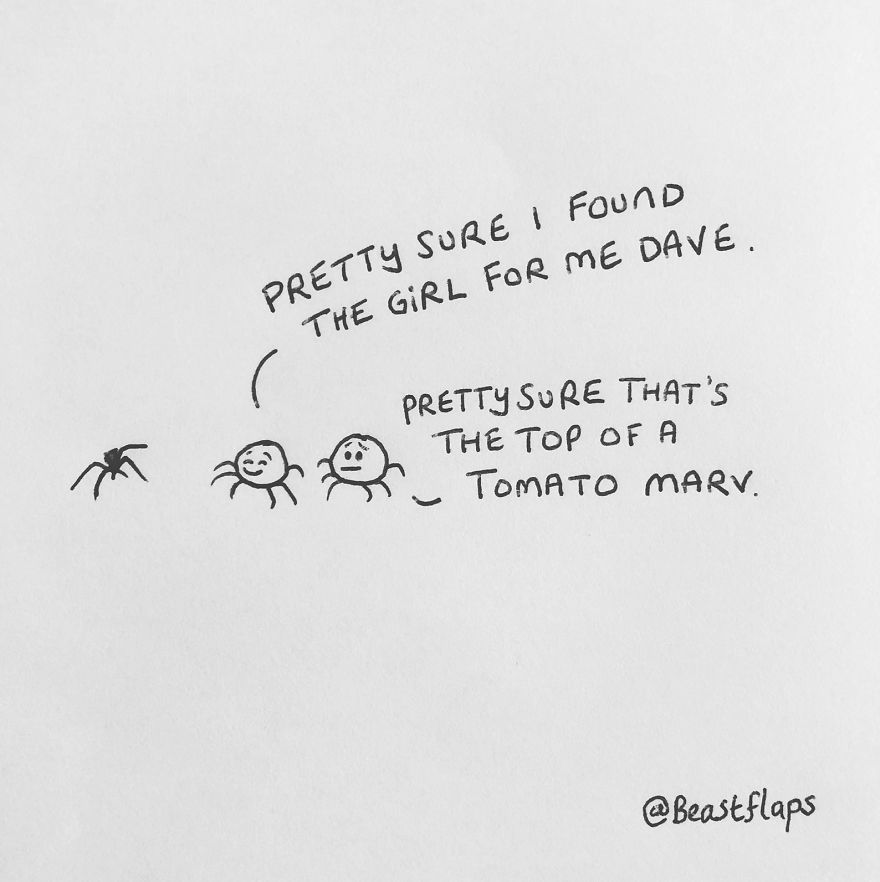 PRETTY SURE I FOUND
THE GIRL FOR ME DAVE.
PRETTY SURE THAT'S
THE TOP OF A
TOMATO MARV.
@Beastflaps